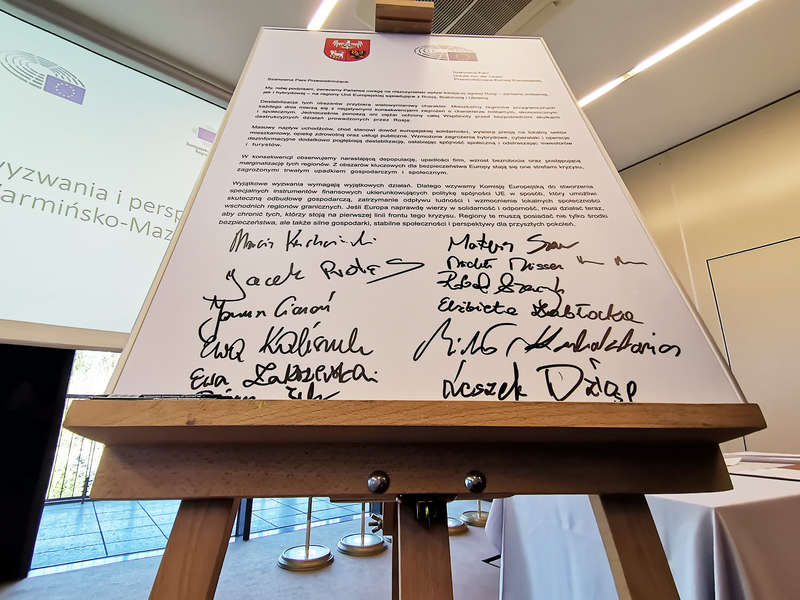 wyzwania i persp
Warmińsko-Maz
Szanowna Pani Przewodnicząca,
Szanowna Pani
Ursula von der Leyen
Przewodnicząca Komisji Europejskiej
My, niżej podpisani, zwracamy Państwa uwagę na
jak i hybrydowej – na regiony Unii Europejskiej sąsiadujące z Rosją, Białorusią i Ukrainą.
Destabilizacja tych obszarów przybiera wielowymiarowy charakter. Mieszkańcy regionów przygranicznych
każdego dnia mierzą się z negatywnymi konsekwencjami zagrożeń o charakterze militarnym, ekonomicznym
i społecznym. Jednocześnie ponoszą oni ciężar ochrony całej Wspólnoty przed bezpośrednimi skutkami
destrukcyjnych działań prowadzonych przez Rosję.
Masowy napływ uchodźców, choć stanowi dowód europejskiej solidarności, wywiera presję na lokalny sektor
mieszkaniowy, opiekę zdrowotną oraz usługi publiczne. Wzmożone zagrożenia hybrydowe, cyberataki i operacje
dezinformacyjne dodatkowo pogłębiają destabilizację, osłabiając spójność społeczną i odstraszając inwestorów
i turystów.
W konsekwencji obserwujemy narastającą depopulację, upadłości firm, wzrost bezrobocia oraz postępującą
marginalizację tych regionów. Z obszarów kluczowych dla bezpieczeństwa Europy stają się one strefami kryzysu,
zagrożonymi trwałym upadkiem gospodarczym i społecznym.
Wyjątkowe wyzwania wymagają wyjątkowych działań. Dlatego wzywamy Komisję Europejską do stworzenia
specjalnych instrumentów finansowych ukierunkowujących politykę spójności UE w sposób, który umożliwi
skuteczną odbudowę gospodarczą, zatrzymanie odpływu ludności i wzmocnienie lokalnych społeczności
wschodnich regionów granicznych. Jeśli Europa naprawdę wierzy w solidarność i odporność, musi działać teraz,
aby chronić tych, którzy stoją na pierwszej linii frontu tego kryzysu. Regiony te muszą posiadać nie tylko środki
bezpieczeństwa, ale także silne gospodarki, stabilne społeczności i perspektywy dla przyszłych pokoleń.
Marcin
Jacek
Elżbieta Zabłocka
Ewa
Ewa Zakrzewska
Leszek